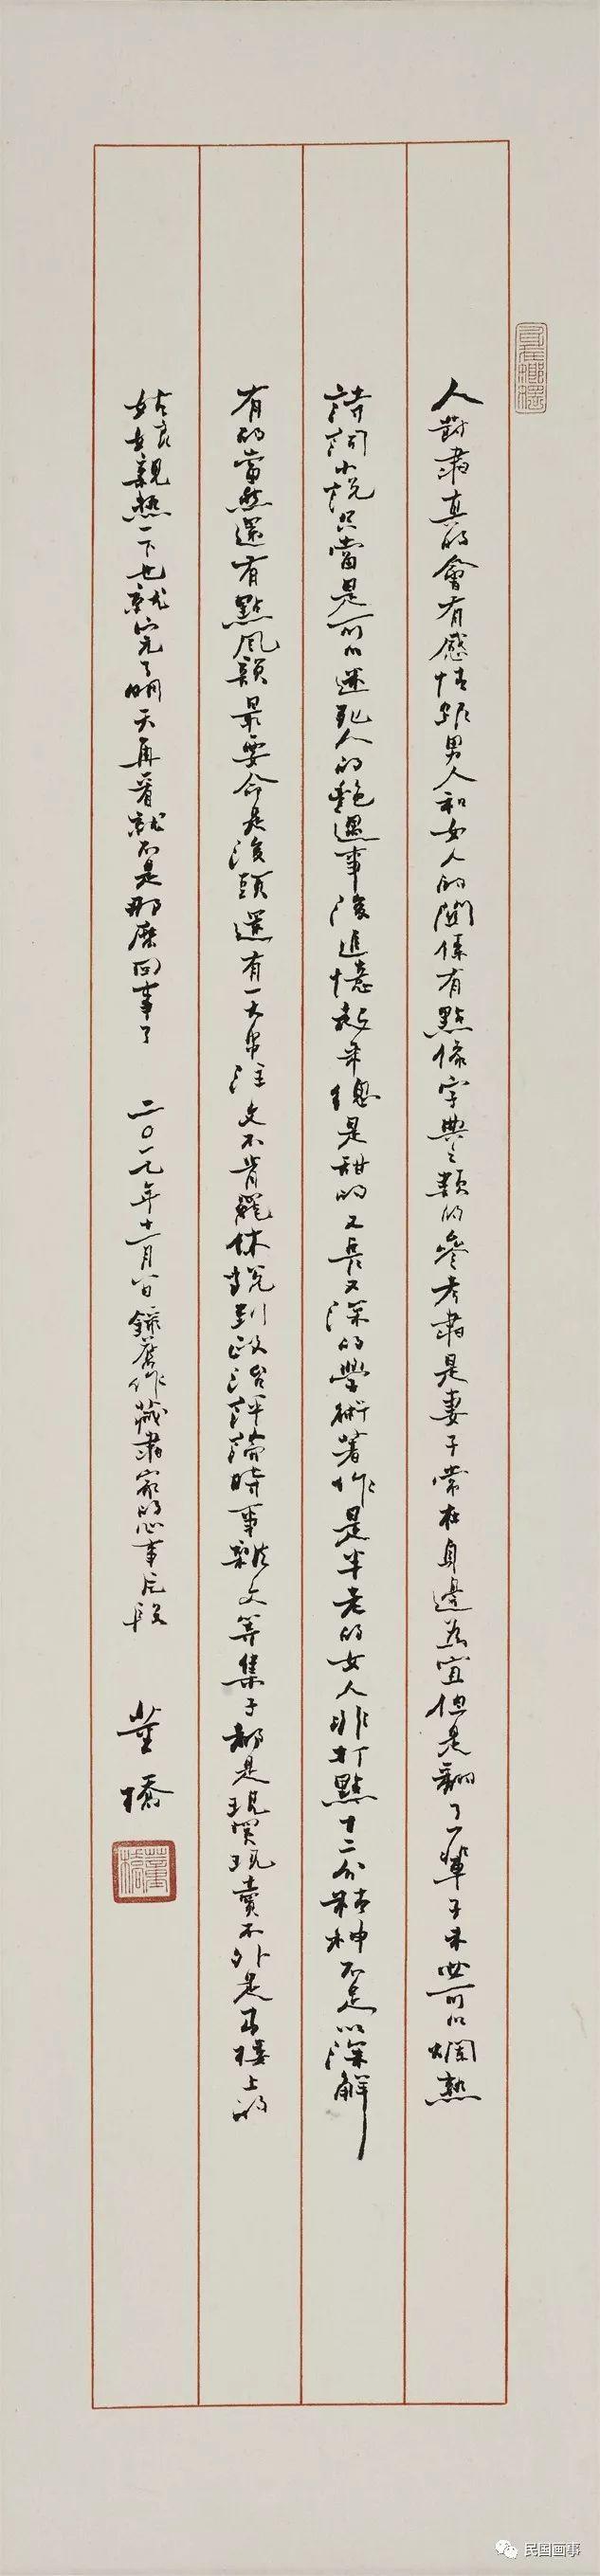 人對書真的會有感情跟男人和女人的關係有點像字典之類的參考書是妻子常在身邊為宜但是翻了一輩子未必可以爛熟
詩詞小說只當是可以迷死人的艷遇事後追憶起來總是甜的又長又深的學術著作是半老的女人非打點十二分精神不足以深解
有的當然還有點風韻最要命是後頭還有一大串注文不肯罷休說到政治評論時事雜文等集子都是現買現賣不外是青樓上的
姑娘親熱一下也就完了明天再看就不是那麼回事了 二〇一九年十一月一日錄舊作藏書家的心事片段 董橋
董橋
民国画事